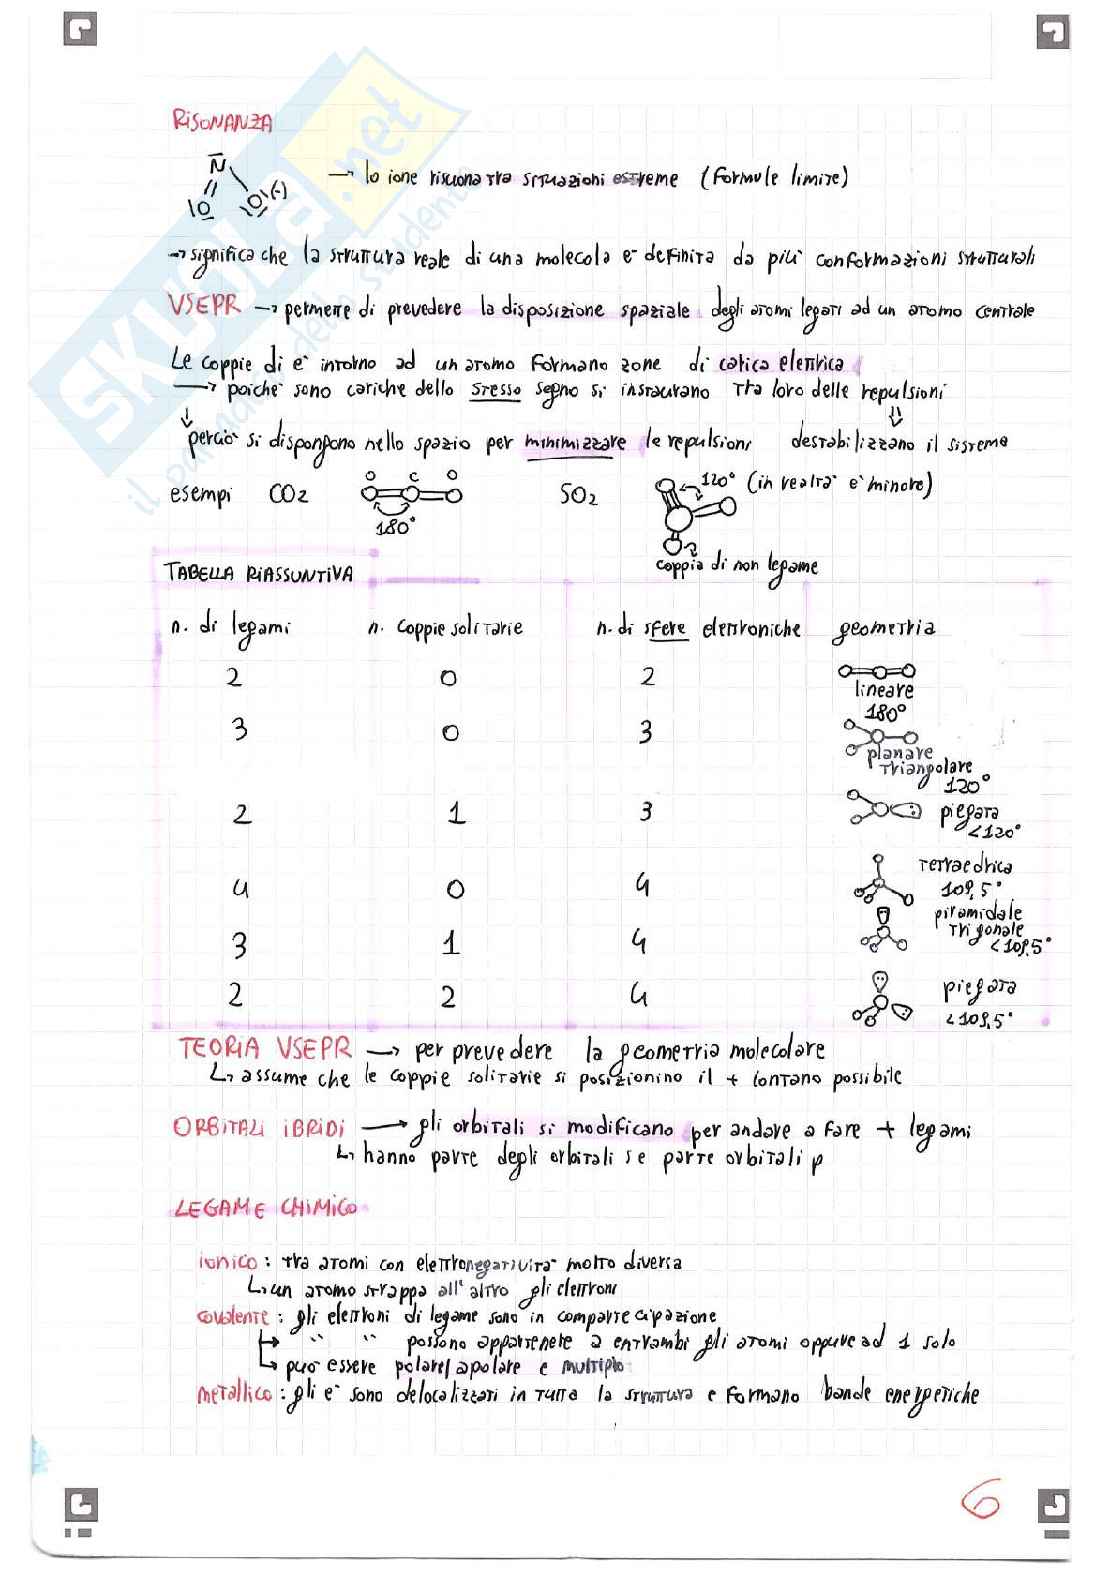 SKUOLA.net
il paradiso dello studente
RISONANZA
N
→ lo ione risuona tra situazioni estreme (formule limite)
|O O|(-)
→ significa che la struttura reale di una molecola è definita da più conformazioni strutturali
VSEPR → permette di prevedere la disposizione spaziale degli atomi legati ad un atomo centrale
Le coppie di e⁻ intorno ad un atomo formano zone di carica elettrica
→ poiché sono cariche dello stesso segno si instaurano tra loro delle repulsioni
perciò si dispongono nello spazio per minimizzare le repulsioni destabilizzano il sistema
O C O 120° (in realtà è minore)
esempi CO2 SO2
180°
coppia di non legame
TABELLA RIASSUNTIVA
n. di legami n. coppie solitarie n. di sfere elettroniche geometria
2 0 2
lineare
180°
3 0 3
planare
triangolare
120°
2 1 3 piegata
<120°
4 0 4 tetraedrica
109,5°
piramidale
trigonale
3 1 4 <109,5°
2 2 4 piegata
<109,5°
TEORIA VSEPR → per prevedere la geometria molecolare
↳ assume che le coppie solitarie si posizionino il + lontano possibile
ORBITALI IBRIDI → gli orbitali si modificano per andare a fare + legami
↳ hanno parte degli orbitali s e parte orbitali p
LEGAME CHIMICO
ionico: tra atomi con elettronegatività molto diversa
↳ un atomo strappa all'altro gli elettroni
covalente: gli elettroni di legame sono in compartecipazione
↳ " " possono appartenere a entrambi gli atomi oppure ad 1 solo
↳ può essere polare/apolare e multiplo
metallico: gli e⁻ sono delocalizzati in tutta la struttura e formano bande energetiche
6